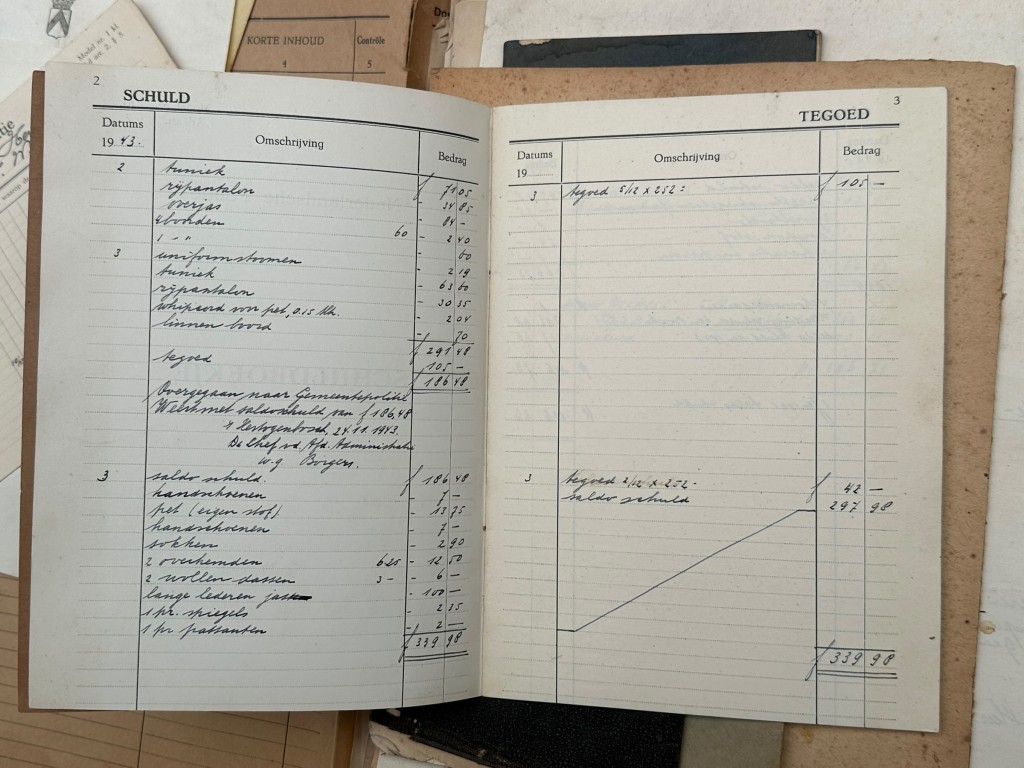 Model nr. 1 H
KORTE INHOUD
Contrôle
4
5
2
SCHULD
Datums
1943.
Omschrijving
Bedrag
2 tuniek f 71 05
rijpantalon - 34 85
overjas - 84 -
4 boorden 60 - 2 40
1 - " - 60
3 uniform stoomen - 2 19
tuniek - 63 60
rijpantalon - 30 35
whipcord voor pet, 0.15 M. - 2 04
linnen boord - 70
f 291 48
tegoed 105 -
f 186 48
Overgegaan naar Gemeentepolitie
Weert met saldoschuld van f 186,48
's Hertogenbosch, 24.11.1943.
De Chef v.d. Afd. Administratie
w.g. Borgers.
3 saldo schuld. f 186 48
handschoenen - 7 -
pet (eigen stof) - 13 75
handschoenen - 7 -
sokken - 2 90
2 overhemden 6 25 - 12 50
2 wollen dassen 3 - - 6 -
lange lederen jas - 100 -
1 pr. spiegels - 2 35
1 pr passanten - 2 -
f 339 98
3
TEGOED
Datums
19
Omschrijving
Bedrag
3 tegoed 5/12 x 252 = f 105 -
3 tegoed 2/12 x 252 - f 42 -
saldo schuld 297 98
f 339 98